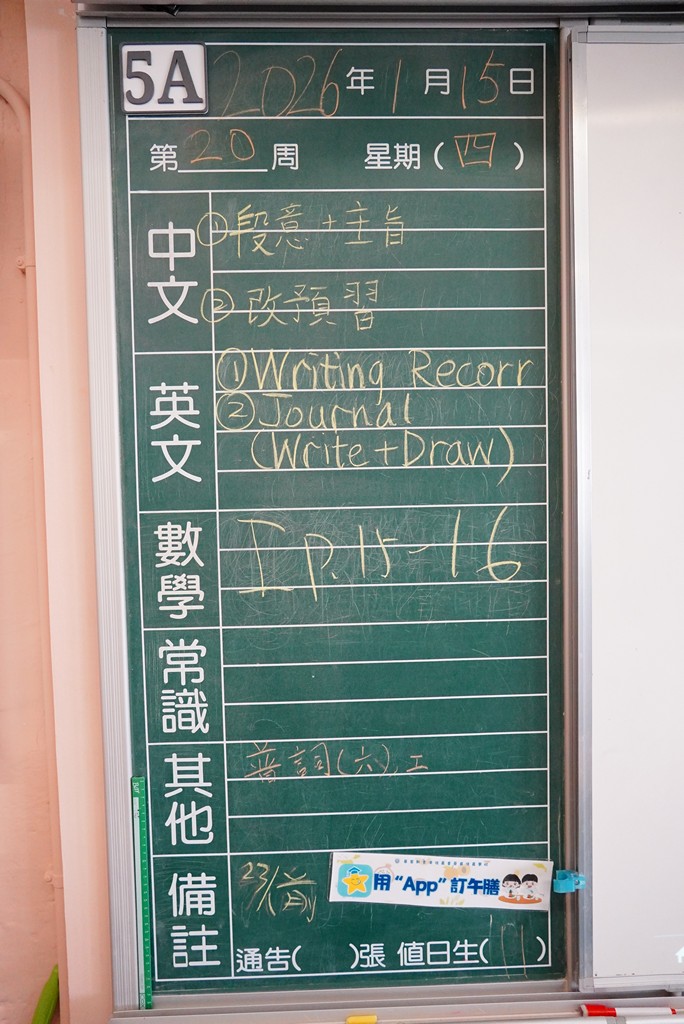 5A 2026年1月15日
第20周 星期(四)
中文
①段意+主旨
②改預習
英文
①Writing Recorr
②Journal
(Write+Draw)
數學
I p.15-16
常識
其他
普詞(六),工
備註
23/前
用“App”訂午膳
通告( )張 值日生(11)